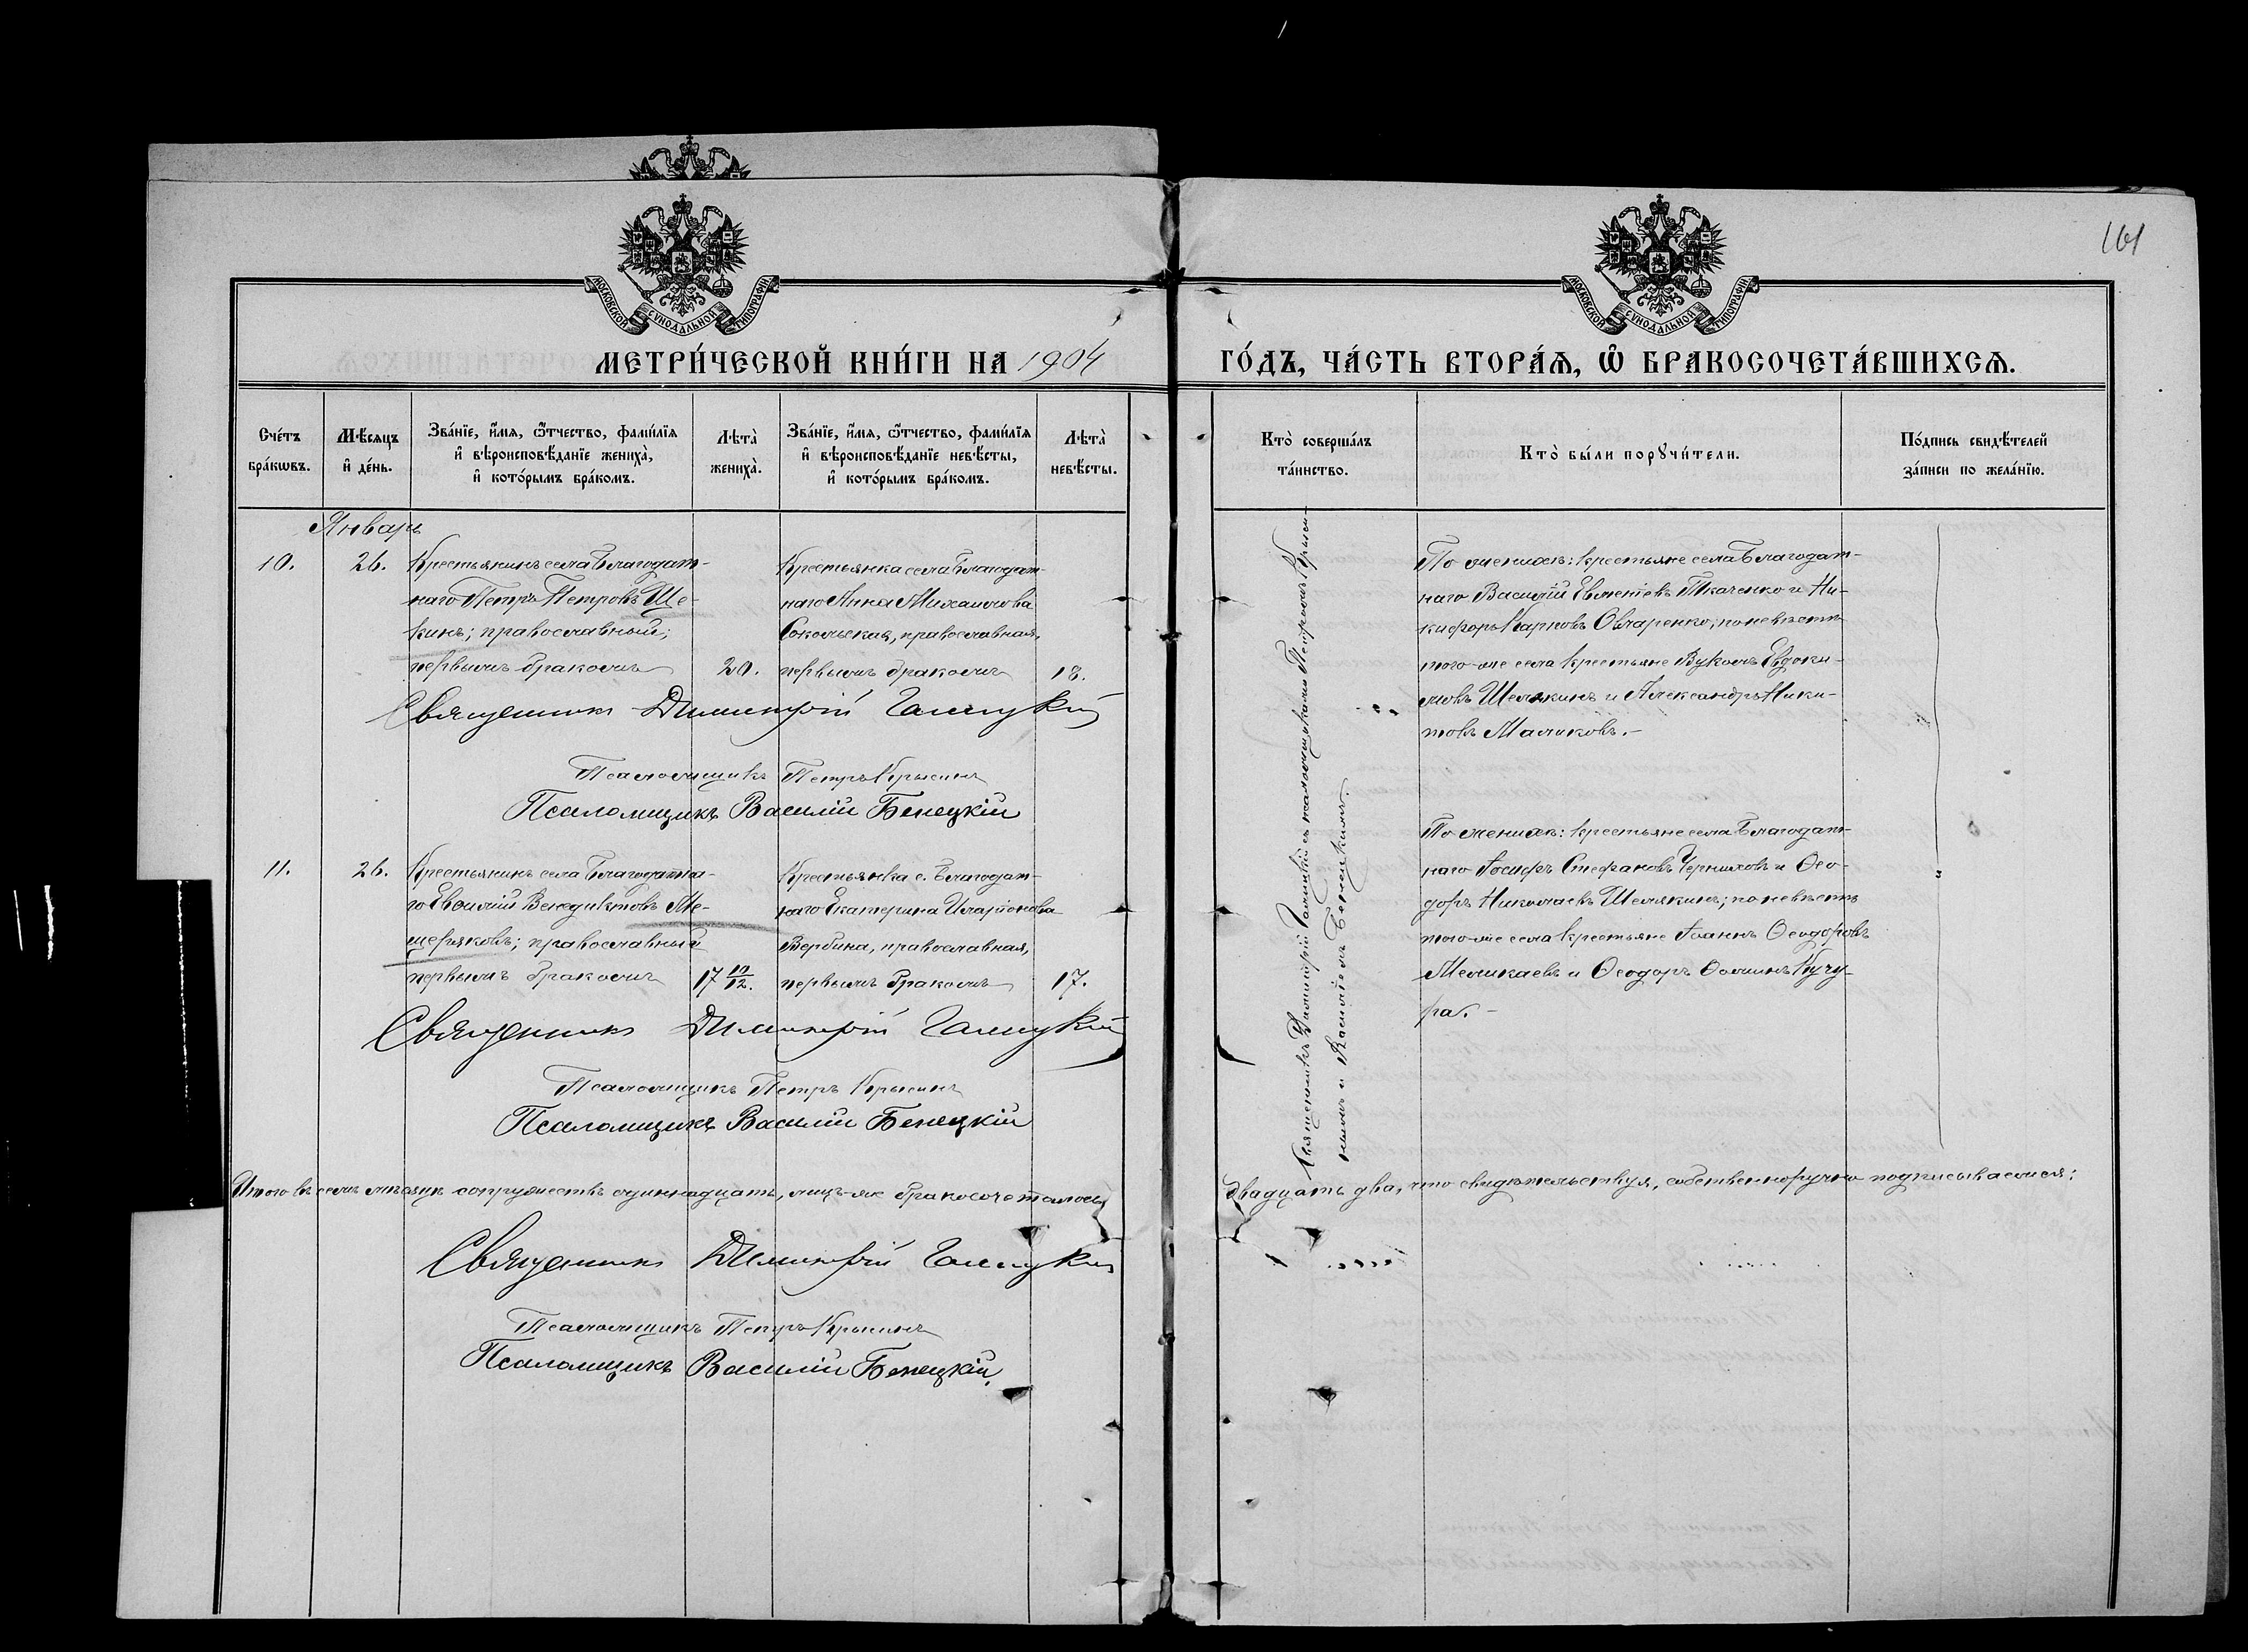 161
МОСКОВСКОЙ СѴНОДАЛЬНОЙ ТИПОГРАФІИ
МОСКОВСКОЙ СѴНОДАЛЬНОЙ ТИПОГРАФІИ
МЕТРИ́ЧЕСКОЙ КНИ́ГИ НА 1904 ГО́ДЪ, ЧА́СТЬ ВТОРА́Ѧ, Ѽ БРАКОСОЧЕТА́ВШИХСѦ.
Сче́тъ бра́кѡвъ.
Мѣ́сяцъ и҆ де́нь.
Зва́нїе, и҆́мѧ, ѻ҆́тчество, фами́лїѧ и҆ вѣроисповѣ́данїе жениха̀, и҆ кото́рымъ бра́комъ.
Лѣта̀ жениха̀.
Зва́нїе, и҆́мѧ, ѻ҆́тчество, фами́лїѧ и҆ вѣроисповѣ́данїе невѣ́сты, и҆ кото́рымъ бра́комъ.
Лѣта̀ невѣ́сты.
Кто̀ соверша́лъ та́инство.
Кто̀ бы́ли порꙋчи́тели.
По́дпись свидѣ́телей за́писи по жела́нїю.
Январь
10.
26.
Крестьянинъ села Благодат-
наго Петръ Петровъ Ше-
кинъ; православный;
первымъ бракомъ
20.
Крестьянка села Благодат-
наго Анна Михаилова
Сокольская, православная,
первымъ бракомъ
18.
Священникъ Димитрій Галицкій
Псаломщикъ Петръ Крысинъ
Псаломщикъ Василій Бенецкій
Священникъ Димитрій Галицкій съ псаломщиками Петромъ Крыси-
нымъ и Василіемъ Бенецкимъ.
По женихѣ: крестьяне села Благодат-
наго Василій Евментіевъ Ткаченко и Ни-
кифоръ Карповъ Овчаренко; по невѣстѣ
того-же села крестьяне Вуколъ Евдоки-
мовъ Шелякинъ и Александръ Ники-
товъ Маликовъ.-
11.
26.
Крестьянинъ села Благодатна-
го Евфимій Венедиктовъ Ме-
щеряковъ; православный
первымъ бракомъ
17 11/12.
Крестьянка с. Благодат-
наго Екатерина Иларіонова
Вербина, православная,
первымъ бракомъ
17.
По женихѣ: крестьяне села Благодат-
наго Іосифъ Стефановъ Черниховъ и Ѳео-
доръ Николаевъ Шелякинъ; по невѣстѣ
того-же села крестьяне Іоаннъ Ѳеодоровъ
Меликаевъ и Ѳеодоръ Ѳоминъ Кучу-
ра.-
Священникъ Димитрій Галицкій
Псаломщикъ Петръ Крысинъ
Псаломщикъ Василій Бенецкій
Итого въ семъ мѣсяцѣ супружествъ одиннадцать, лицъ-же бракосочеталось двадцать два, что свидѣтельствуя, собственноручно подписываемся:
Священникъ Димитрій Галицкій
Псаломщикъ Петръ Крысинъ
Псаломщикъ Василій Бенецкій.